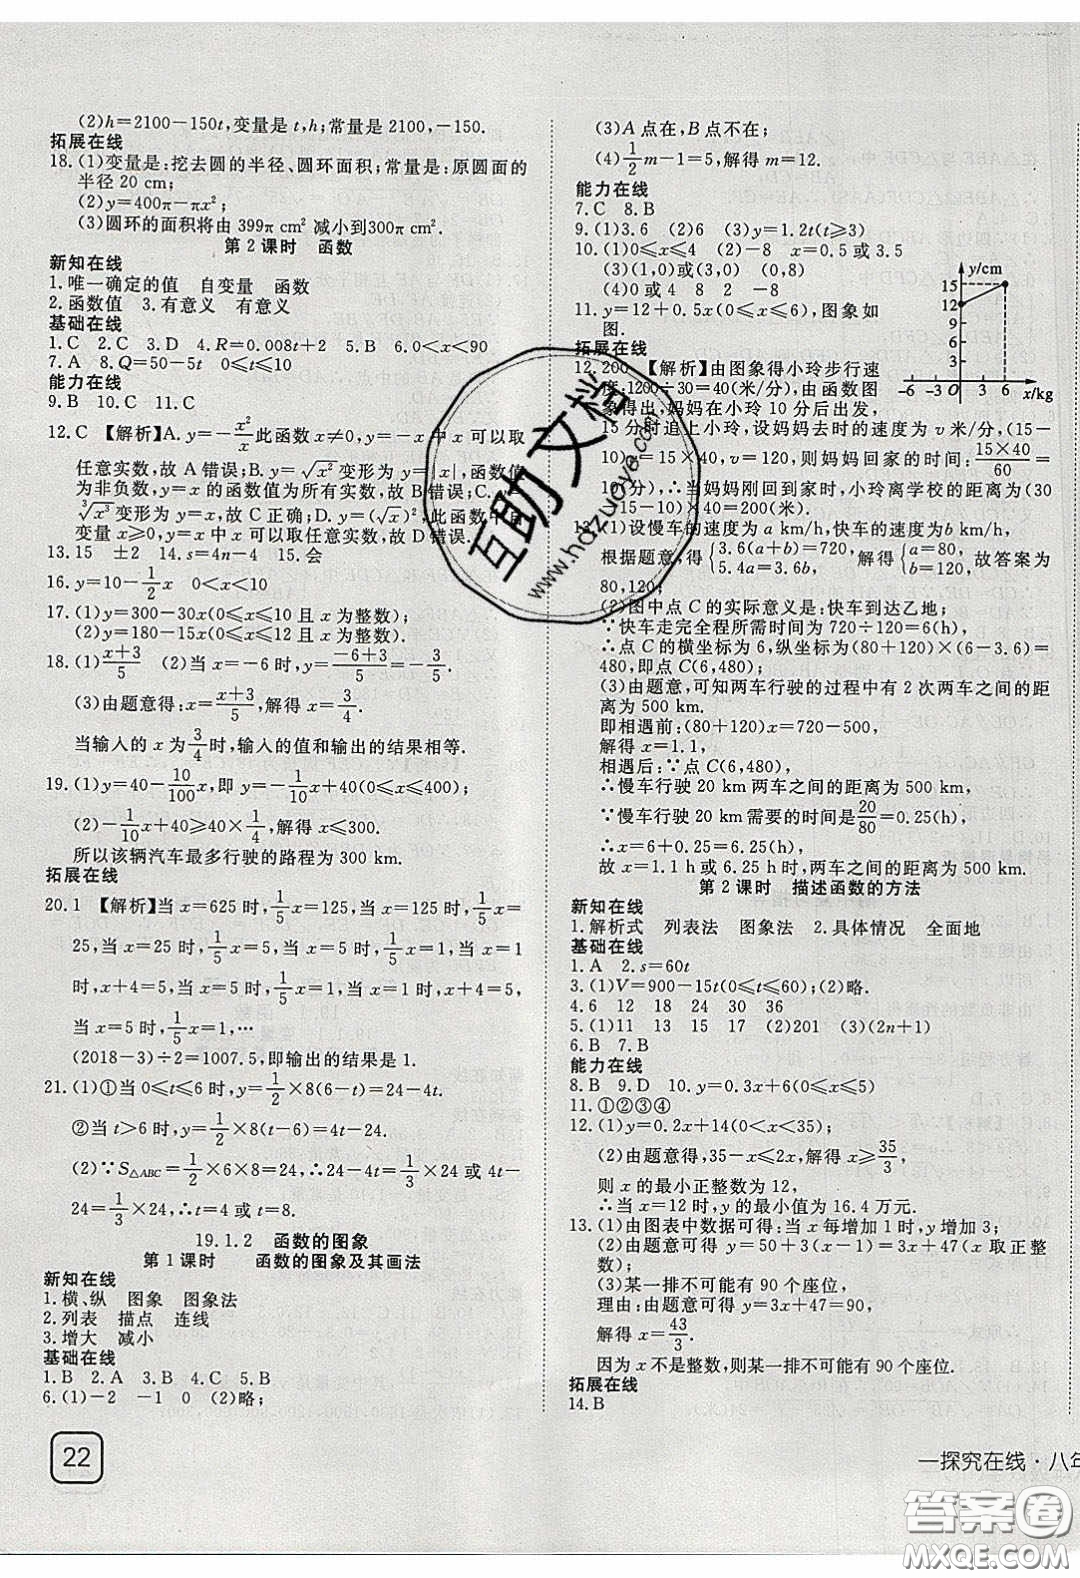 (2)h=2100-150t,变量是t,h;常量是2100,-150.
拓展在线
18.(1)变量是:挖去圆的半径、圆环面积;常量是:原圆面的
半径20 cm;
(2)y=400π-πx²;
(3)圆环的面积将由399π cm² 减小到300π cm².
第2课时 函数
新知在线
1.唯一确定的值 自变量 函数
2.函数值 3.有意义 有意义
基础在线
1.C 2.C 3.D 4.R=0.008t+2 5.B 6.0<x<90
7.A 8.Q=50-5t 0≤t≤10
能力在线
9.B 10.C 11.C
12.C 【解析】A.y=-x²/x此函数x≠0,y=-x中x可以取
任意实数,故A错误;B.y=√x²变形为y=|x|,函数值
为非负数,y=x的函数值为所有实数,故B错误;C.y=
∛x³变形为y=x,故C正确;D.y=(√x)²,此函数中自
变量x≥0,y=x中x可以取任意实数,故D错误.
13.15 ±2 14.s=4n-4 15.会
16.y=10-1/2x 0<x<10
17.(1)y=300-30x(0≤x≤10且x为整数).
(2)y=180-15x(0≤x≤12且x为整数).
18.(1)(x+3)/5 (2)当x=-6时,y=(-6+3)/5=-3/5.
(3)由题意得:x=(x+3)/5,解得:x=3/4.
当输入的x为3/4时,输入的值和输出的结果相等.
19.(1)y=40-10/100x,即y=-1/10x+40(0≤x≤400).
(2)-1/10x+40≥40×1/4,解得:x≤300.
所以该辆汽车最多行驶的路程为300 km.
拓展在线
20.1 【解析】当x=625时,1/5x=125,当x=125时,1/5x=
25,当x=25时,1/5x=5,当x=5时,1/5x=1,当x=1
时,x+4=5,当x=5时,1/5x=1,当x=1时,x+4=5,
当x=5时,1/5x=1,…
(2018-3)÷2=1007.5,即输出的结果是1.
21.(1)①当0≤t≤6时,y=1/2×8(6-t)=24-4t.
②当t>6时,y=1/2×8(t-6)=4t-24.
(2)∵S△ABC=1/2×6×8=24,∴24-4t=1/3×24,4t-
24=1/3×24,∴t=4或t=8.
19.1.2 函数的图象
第1课时 函数的图象及其画法
新知在线
1.横、纵 图象 图象法
2.列表 描点 连线
3.增大 减小
基础在线
1.B 2.A 3.B 4.C 5.B
6.(1)-2 -1 0 (2)略;
22
(3)A点在,B点不在;
(4)1/2m-1=5,解得m=12.
能力在线
7.C 8.B
9.(1)3.6 (2)6 (3)y=1.2t(t≥3)
10.(1)0≤x≤4 (2)-8 x=0.5或3.5
(3)(1,0)或(3,0) (0,6)
(4)0或4 8 2 -8
11.y=12+0.5x(0≤x≤6),图象如
图.
y/cm
15
12
9
6
3
-6 -3 O 3 6 x/kg
拓展在线
12.200 【解析】由图象得小玲步行速
度:1200÷30=40(米/分),由函数图
象得出,妈妈在小玲10分后出发,
15分时追上小玲,设妈妈去时的速度为v米/分,(15-
10)v=15×40,v=120,则妈妈回家的时间:(15×40)/60=
10(分),∴当妈妈刚回到家时,小玲离学校的距离为(30
-15-10)×40=200(米)
13.(1)设慢车的速度为a km/h,快车的速度为b km/h,
根据题意得:{3.6(a+b)=720, 5.4a=3.6b, 解得{a=80, b=120,故答案为
80,120;
(2)图中点C的实际意义是:快车到达乙地;
∵快车走完全程所需时间为720÷120=6(h),
∴点C的横坐标为6,纵坐标为(80+120)×(6-3.6)=
480,即点C(6,480);
(3)由题意,可知两车行驶的过程中有2次两车之间的距
离为500 km.
即相遇前:(80+120)x=720-500,
解得x=1.1,
相遇后:∵点C(6,480),
∴慢车行驶20 km两车之间的距离为500 km,
∵慢车行驶20 km需要的时间是20/80=0.25(h),
∴x=6+0.25=6.25(h),
故x=1.1 h或6.25 h时,两车之间的距离为500 km.
第2课时 描述函数的方法
新知在线
1.解析式 列表法 图象法 2.具体情况 全面地
基础在线
1.A 2.s=60t
3.(1)V=900-15t(0≤t≤60);(2)略.
4.6 12 18 24 30 36
5.(1)11 13 15 17 (2)201 (3)(2n+1)
6.B 7.B
能力在线
8.B 9.D 10.y=0.3x+6(0≤x≤5)
11.①②③④
12.(1)y=0.2x+14(0<x<35);
(2)由题意得,35-x≤2x,解得x≥35/3,
则x的最小正整数为12,
∴当x=12时,y有最小值为16.4万元.
13.(1)由图表中数据可得:当x每增加1时,y增加3;
(2)由题意可得:y=50+3(x-1)=3x+47(x取正整
数);
(3)某一排不可能有90个座位,
理由:由题意可得y=3x+47=90,
解得x=43/3.
因为x不是整数,则某一排不可能有90个座位.
拓展在线
14.B
一探究在线·八年
互助文档
www.hdzuoye.com
答案圈
MXQE.COM